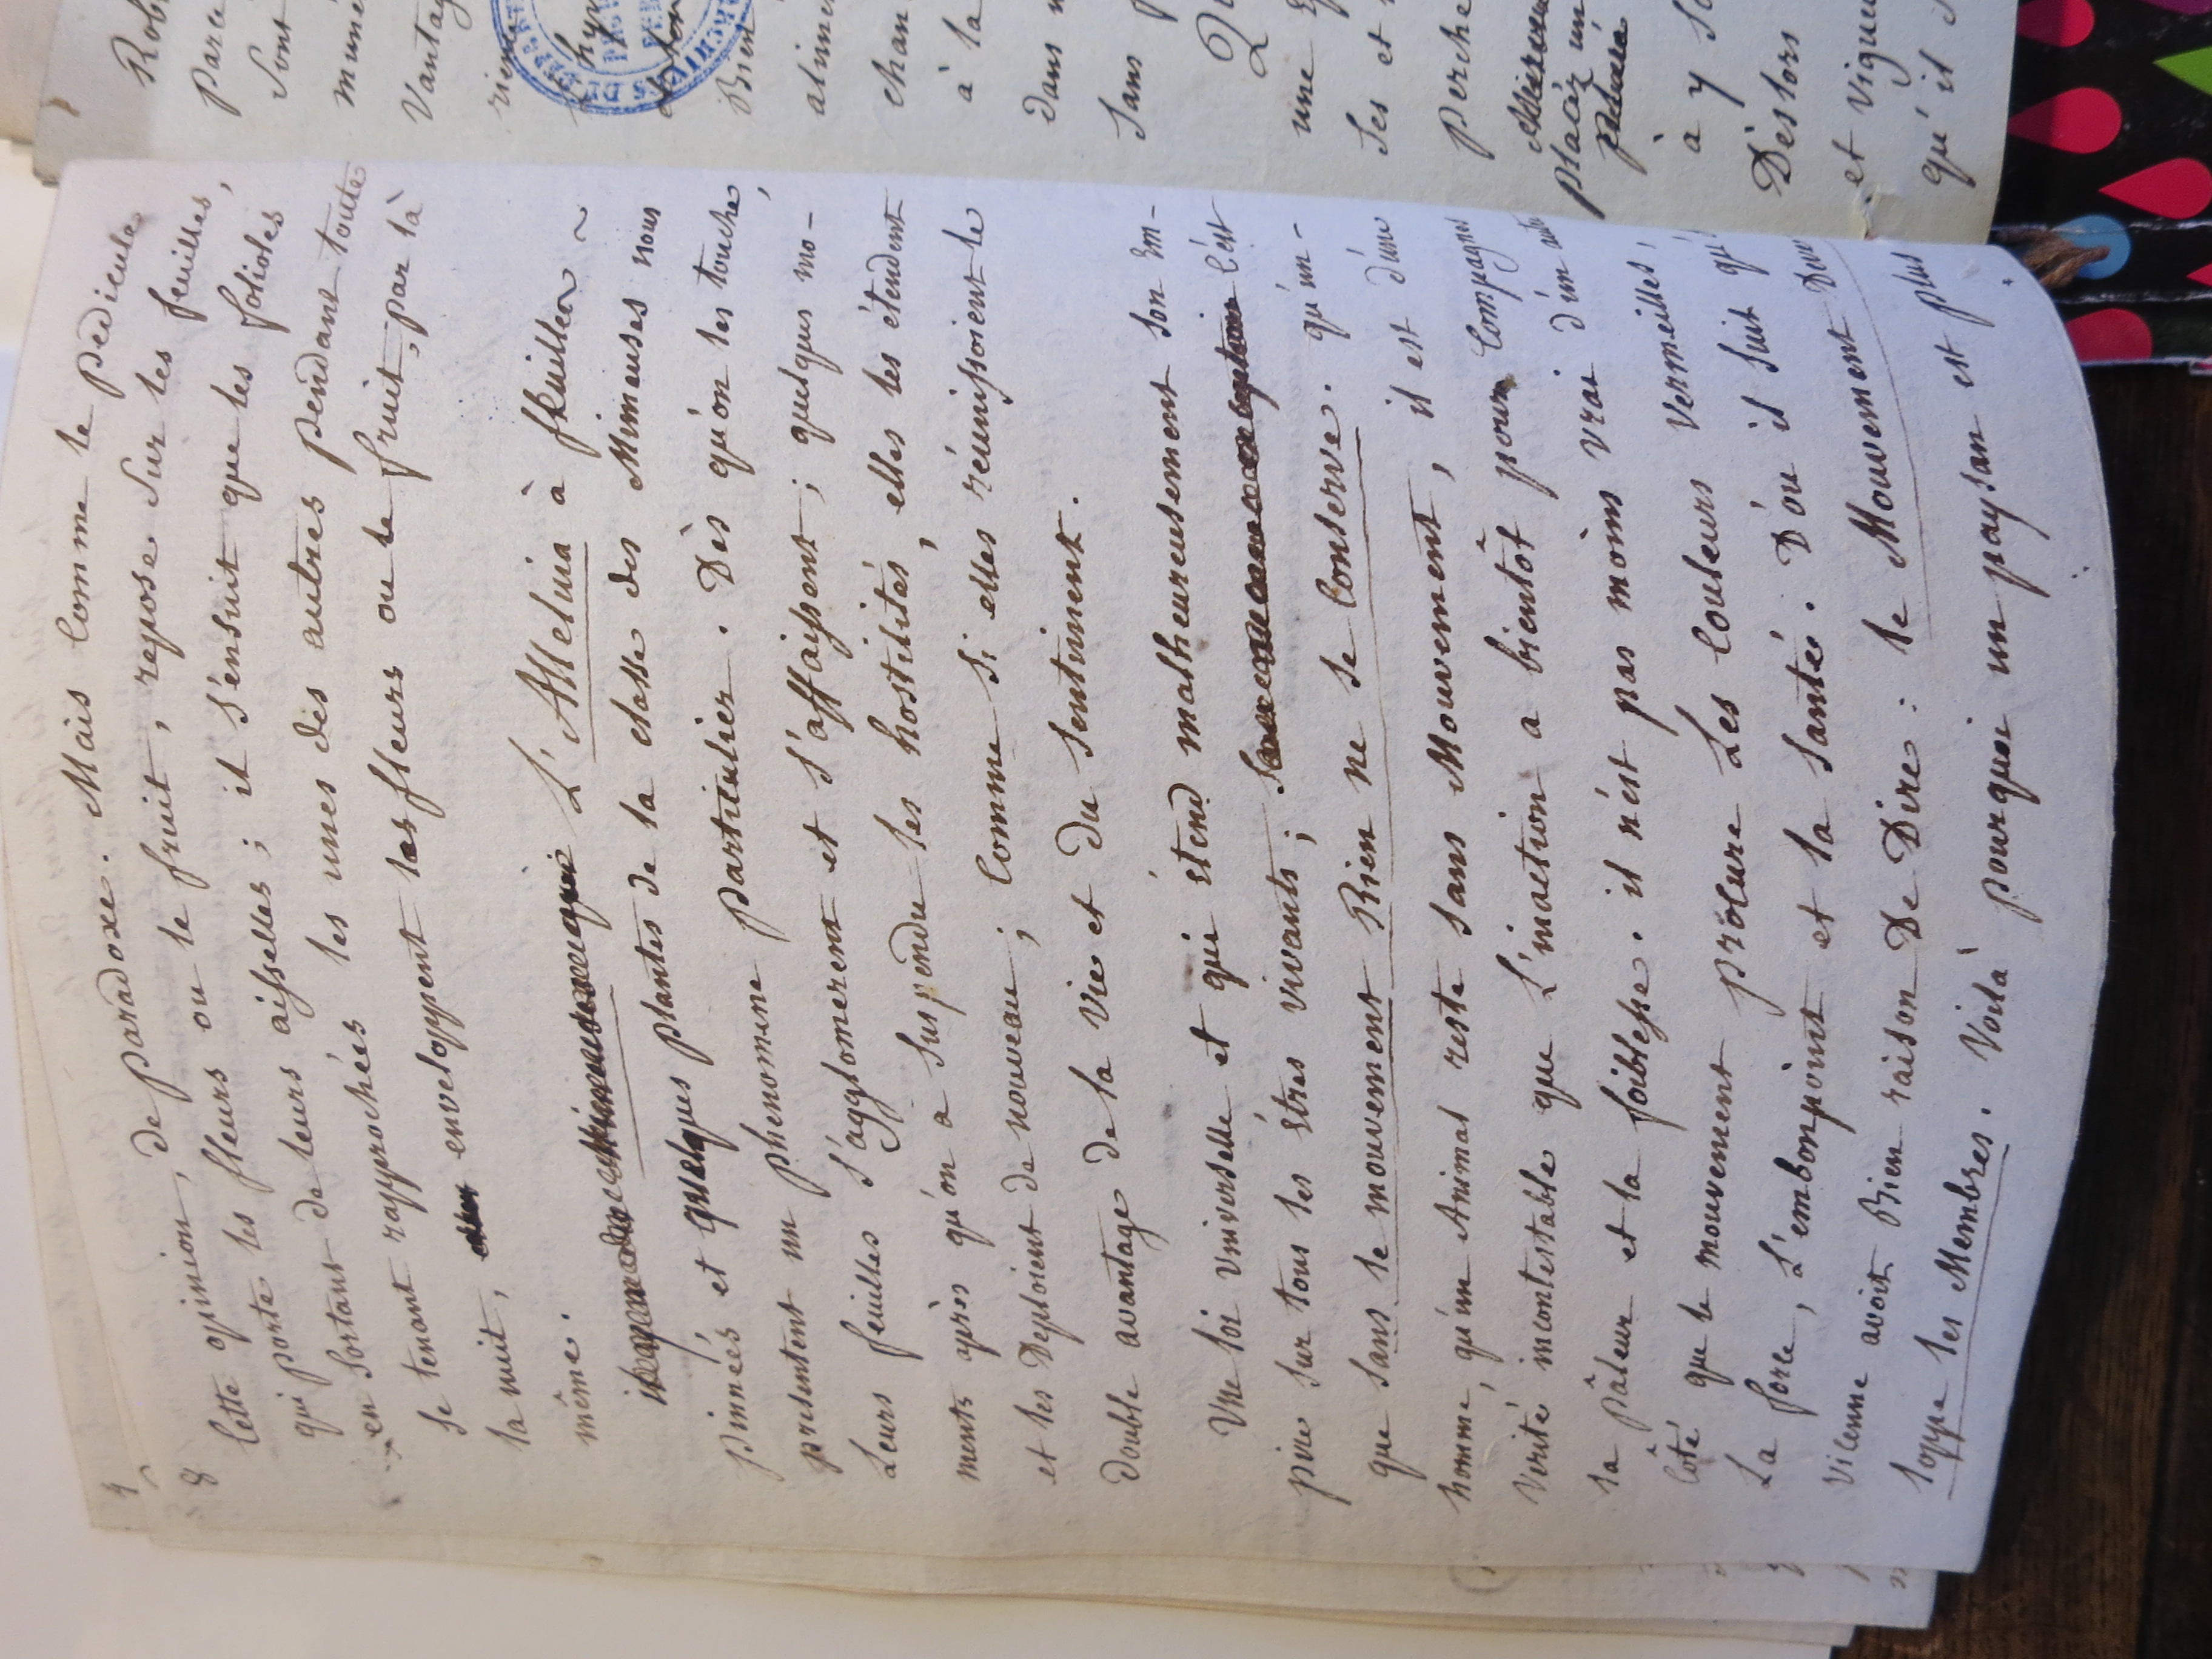 8
Cette opinion, de paradoxe. Mais comme le pédicule
qui porte les fleurs ou le fruit, repose sur les feuilles,
en sortant de leurs aisselles; il s'ensuit que les folioles
se tenant rapprochées les unes des autres pendant toute
la nuit, enveloppent les fleurs ou le fruit, par là
même.
L'Alleluia à feuilles
pinneés et quelques plantes de la classe des Mimeuses nous
presentent un phenomene particulier. Dès qu'on les touche,
Leurs feuilles s'agglomerent et s'affaissent; quelques mo-
ments après qu'on a suspendu les hostilités, elles les étendent
et les Deploient de nouveau; comme si elles réunissoient le
Double avantage de la vie et du sentiment.
Une loi universelle et qui s'étend malheureusement son em-
pire sur tous les êtres vivants; C'est
que sans le mouvement Rien ne se conserve. qu'un-
homme, qu'un Animal reste sans Mouvement, il est d'une
Verité incontestable que L'inaction a bientôt pour Compagnes
la pâleur et la foiblesse. il n'est pas moins vrai d'un autre
côté que le mouvement procure Les couleurs vermeilles,
La force, L'embonpoint et la santée. D'ou il suit qu'
Vilenne avoit Bien raison De Dire: le Mouvement Deve
loppe les Membres. Voilà pourquoi un paysan est plus
Parce
Sont
Vantag
rien
Bien
à la
dans
Sans
une
Ses et
perche
placer un
à y
Dèslors
et vigueu
qu'il